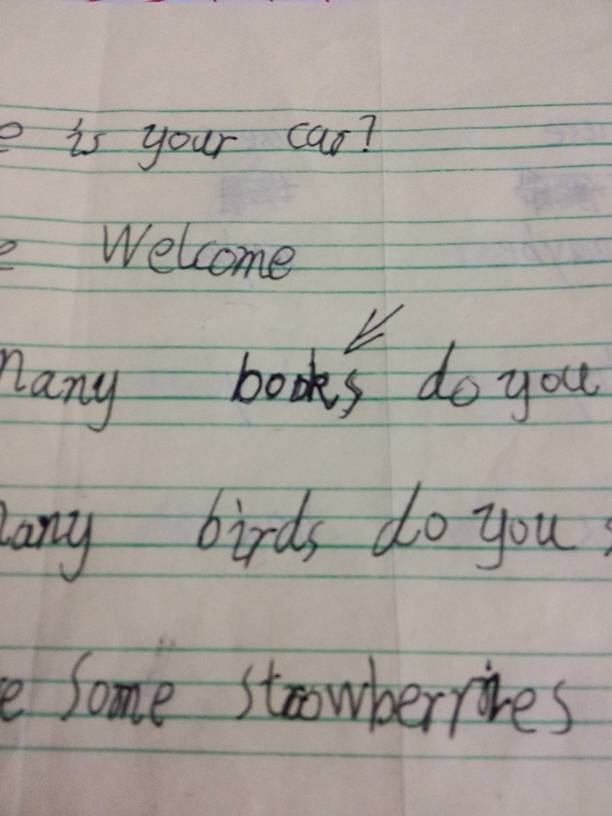 e is your car?
e Welcome
many books do you
many birds do you s
e Some strowberries